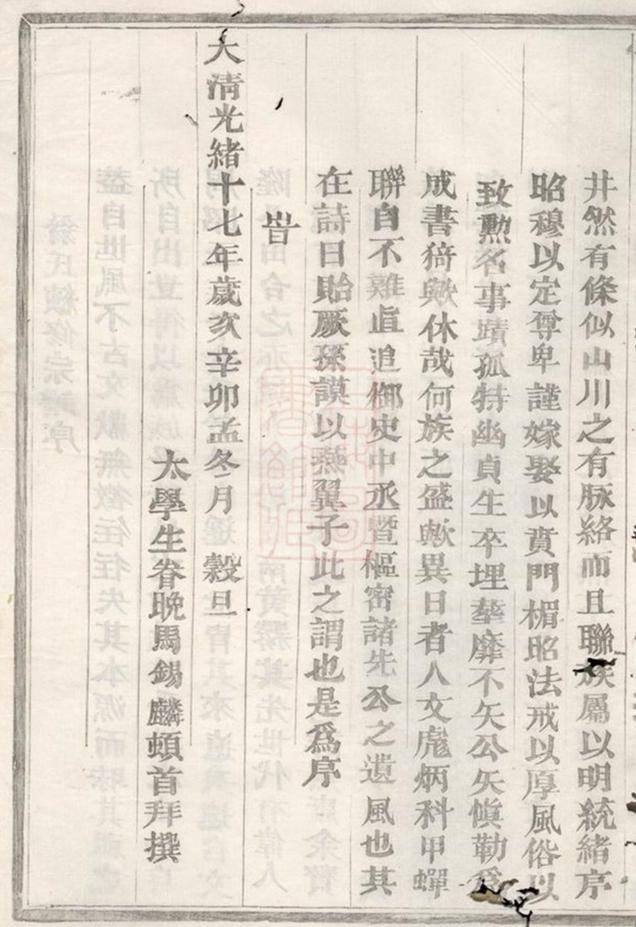 井然有條似山川之有脉絡而且聯族屬以明統緒序
昭穆以定尊卑謹嫁娶以賁門楣昭法戒以厚風俗以
致勲名事蹟孤特幽貞生卒埋塟靡不矢公矢愼勒爲
成書猗歟休哉何族之盛歟異日者人文彪炳科甲蟬
聯自不難直追御史中丞曁樞密諸先公之遺風也其
在詩曰貽厥孫謨以燕翼子此之謂也是爲序
旹
大清光緒十七年歲亥辛卯孟冬月 穀旦
太學生眷晚馬錫麟頓首拜撰